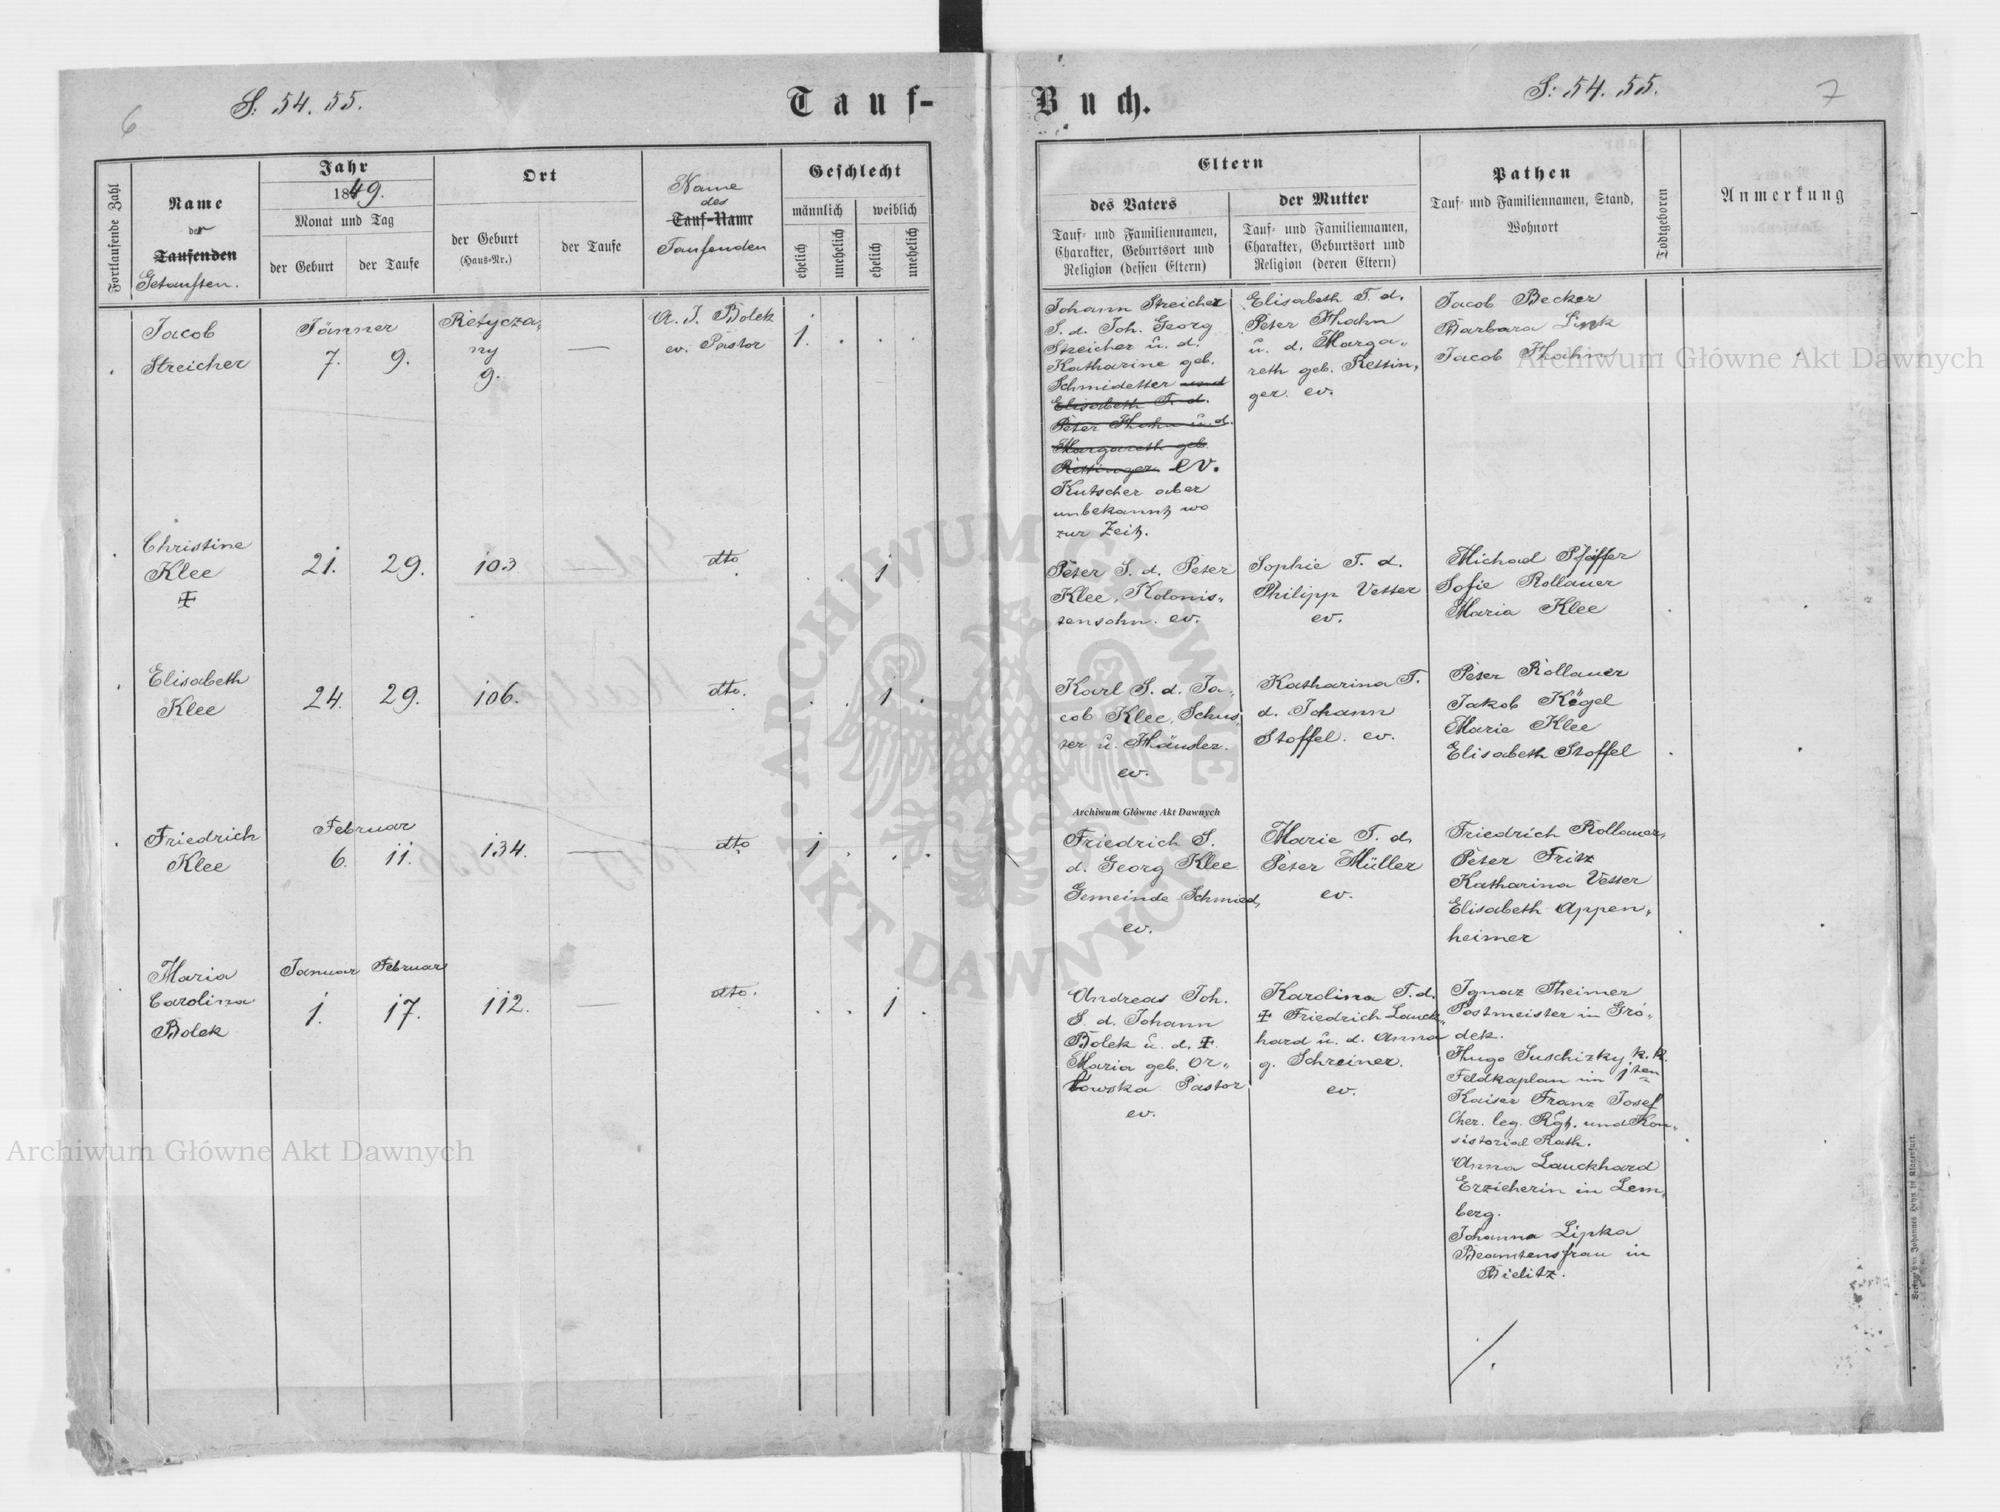 6
S: 54. 55.
Tauf-
Fortlaufende Zahl
Name
der
Taufenden
Getauften.
Jahr
1849.
Monat und Tag
der Geburt
der Taufe
Ort
der Geburt
(Haus-Nr.)
der Taufe
Name
des
Tauf-Name
Taufenden
Geschlecht
männlich
weiblich
ehelich
unehelich
ehelich
unehelich
Jacob
Streicher
Jänner
7. 9.
Retycza„
ny
9.
—
A. J. Bolek
ev. Pastor
1.
Christine
Klee
21. 29.
103
—
dto
1
Elisabeth
Klee
24. 29.
106.
dto.
1
Friedrich
Klee
Februar
6. 11.
134.
—
dto
1
Maria
Carolina
Bolek
Januar Februar
1. 17.
112.
—
dto.
1
S: 54. 55.
7
Buch.
Eltern
des Vaters
Tauf- und Familiennamen,
Charakter, Geburtsort und
Religion (dessen Eltern)
der Mutter
Tauf- und Familiennamen,
Charakter, Geburtsort und
Religion (deren Eltern)
Pathen
Tauf- und Familiennamen, Stand,
Wohnort
Todtgeboren
Anmerkung
Johann Streicher
S. d. Joh. Georg
Streicher u. d.
Katharine geb.
Schmidetter und
Elisabeth T. d.
Peter Hahn u. d.
Margareth geb
Rettinger ev.
Kutscher aber
unbekannt, wo
zur Zeit.
Elisabeth T. d.
Peter Hahn
u. d. Marga„
reth geb. Rettin„
ger ev.
Jacob Becker
Barbara Link
Jacob Hahn
Peter S. d. Peter
Klee, Kolonis„
tensohn. ev.
Sophie T. d.
Philipp Vetter
ev.
Michael Pfeiffer
Sofie Rollauer
Maria Klee
Karl S. d. Ja„
cob Klee, Schus„
ter u. Händler.
ev.
Katharina T.
d. Johann
Stoffel. ev.
Peter Rollauer
Jakob Kögel
Marie Klee
Elisabeth Stoffel
Friedrich S.
d. Georg Klee
Gemeinde Schmied,
ev.
Marie T. d.
Peter Müller
ev.
Friedrich Rollauer,
Peter Fritz
Katharina Vetter
Elisabeth Appen„
heimer
Andreas Joh.
S. d. Johann
Bolek u. d.
Maria geb. Or„
łowska Pastor
ev.
Karolina T. d.
Friedrich Lauck„
hard u. d. Anna
g. Schreiner.
ev.
Ignaz Theimer
Postmeister in Gró„
dek.
Hugo Suschizky k. k.
Feldkaplan im 1ten
Kaiser Franz Josef
Chev. leg. Rgt. und Kon„
sistorial Rath.
Anna Lauckhard
Erzieherin in Lem„
berg.
Johanna Lipka
Beamtensfrau in
Bielitz.
Archiwum Główne Akt Dawnych
Archiwum Główne Akt Dawnych
Archiwum Główne Akt Dawnych
ARCHIWUM GŁÓWNE AKT DAWNYCH